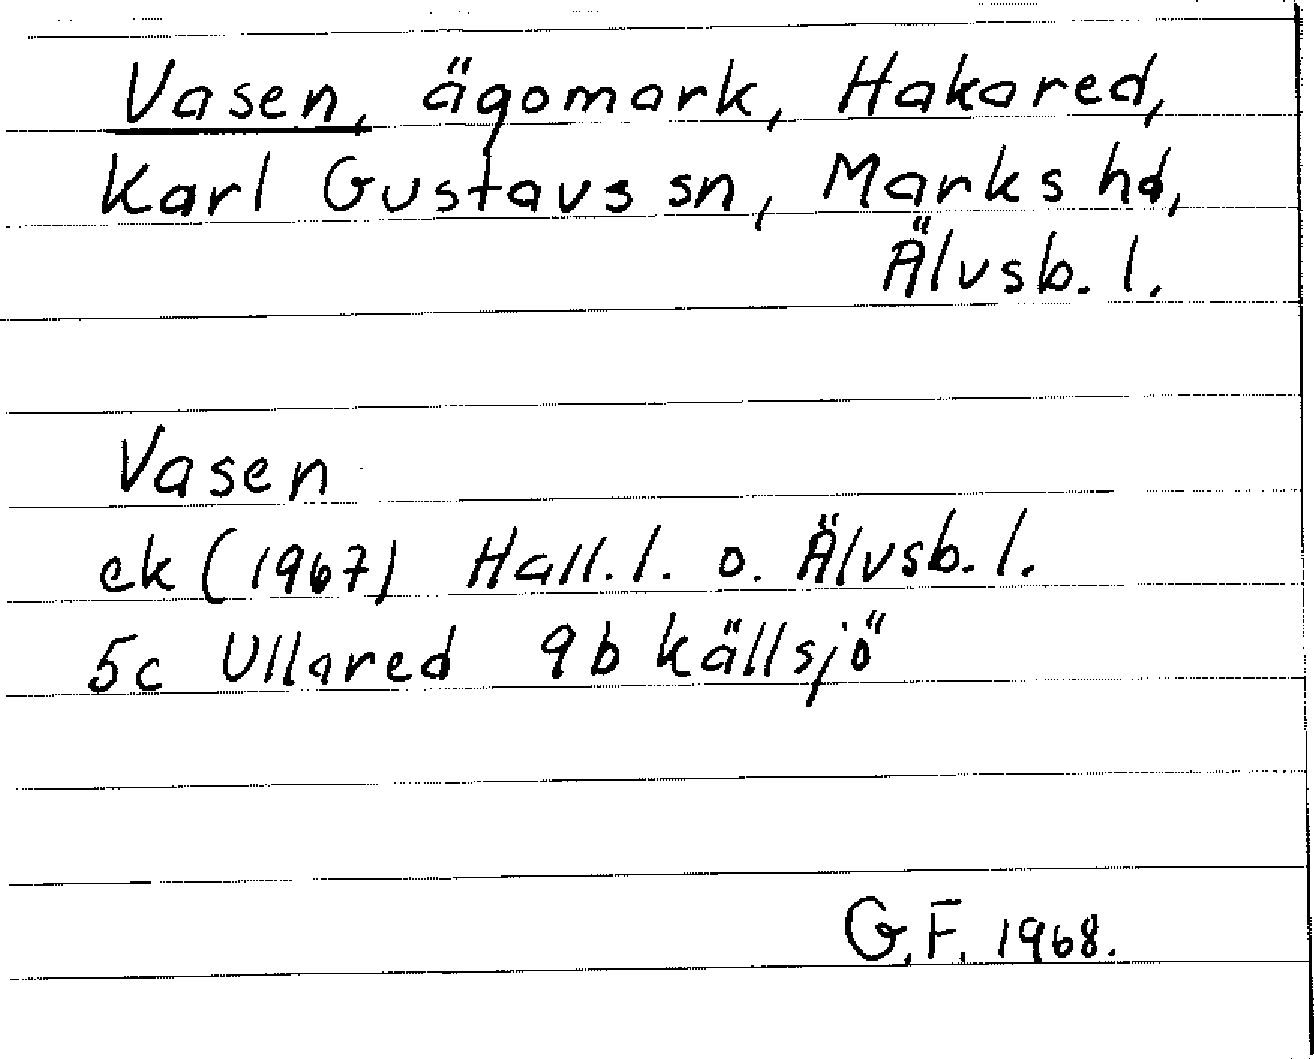 Vasen, ägomark, Hakared,
Karl Gustavs sn, Marks hd,
Älvsb. l.
Vasen
ek (1967) Hall. l. o. Älvsb. l.
5c Ullared 9b källsjö
G.F. 1968.